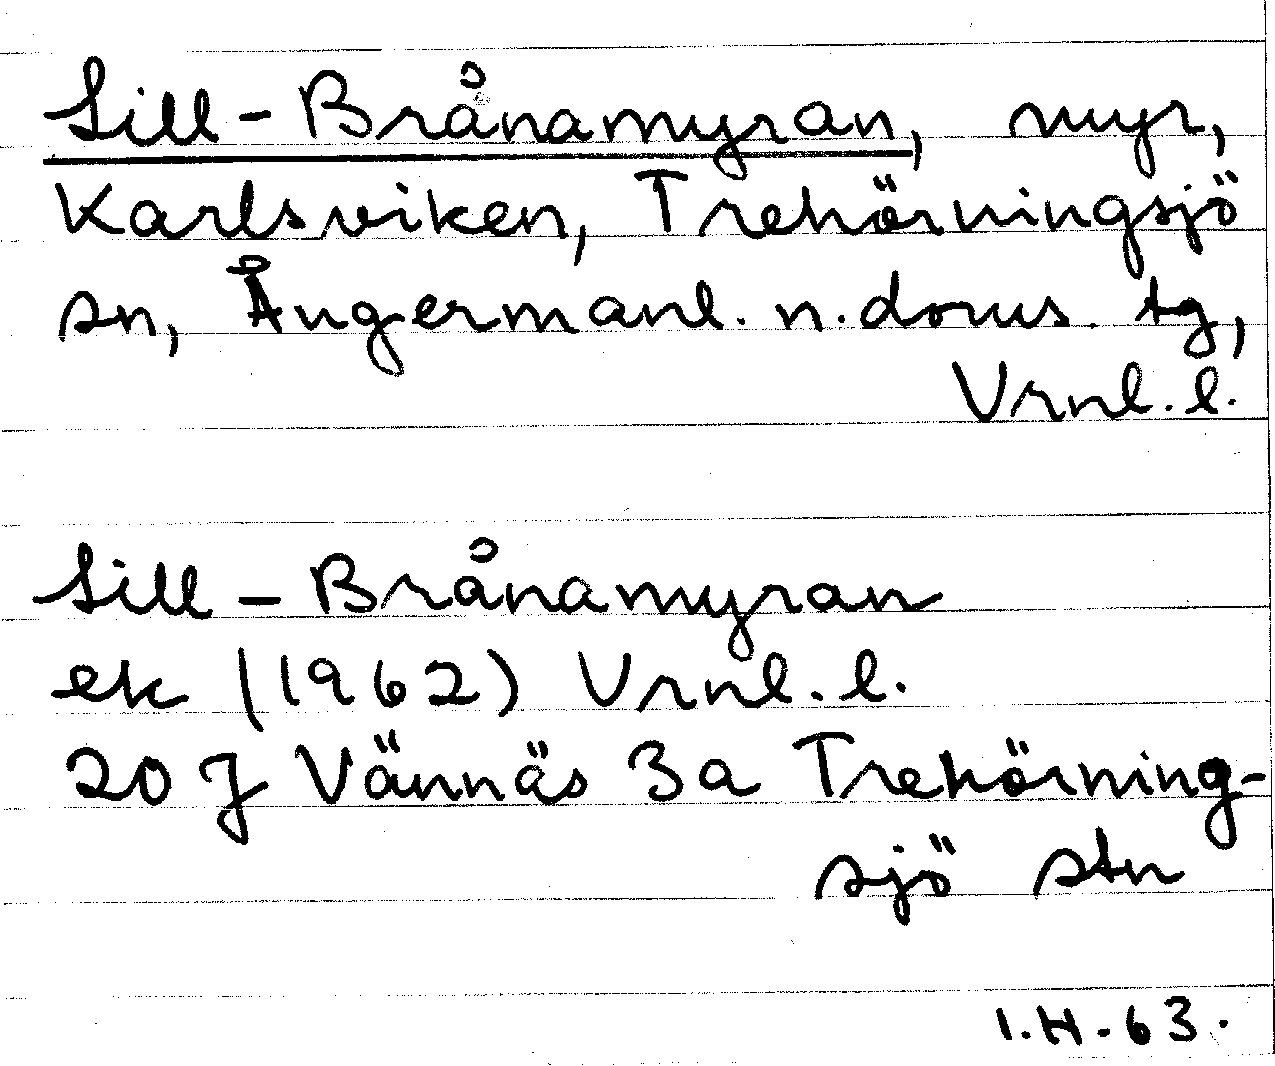 Sill-Brånamyran, myr,
Karlsviken, Trehörningsjö
sn, Ångermanl. n. doms. tg,
Vrnl. l.
Sill-Brånamyran
ek (1962) Vrnl. l.
20 J Vännäs 3a Trehörning-
sjö stn
I.H-63.